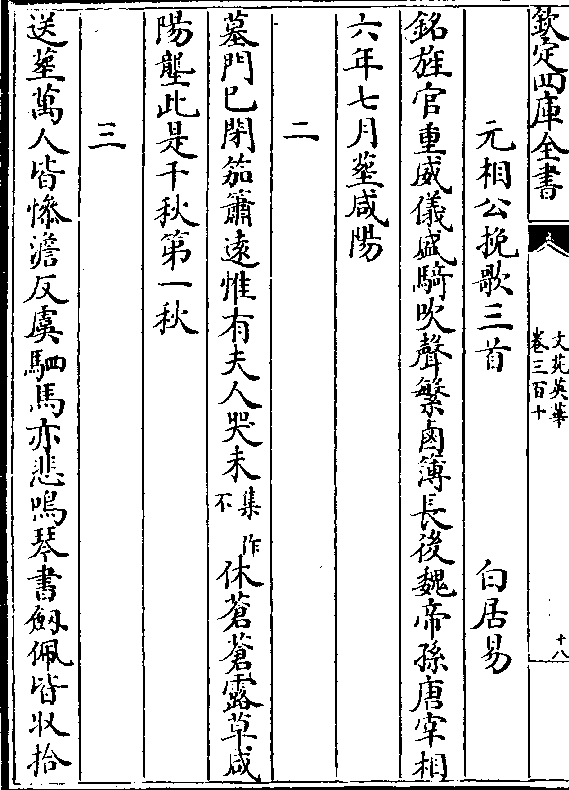 欽定四庫全書
文苑英華
卷三百十
十八
元相公挽歌三首 白居易
銘旌官重威儀盛騎吹聲繁鹵簿長後魏帝孫唐宰相
六年七月葬咸陽
二
墓門已閉笳簫遠惟有夫人哭未集作不休蒼蒼露草咸
陽壟此是千秋第一秋
三
送葬萬人皆慘澹反虞駟馬亦悲鳴琴書劍佩皆收拾